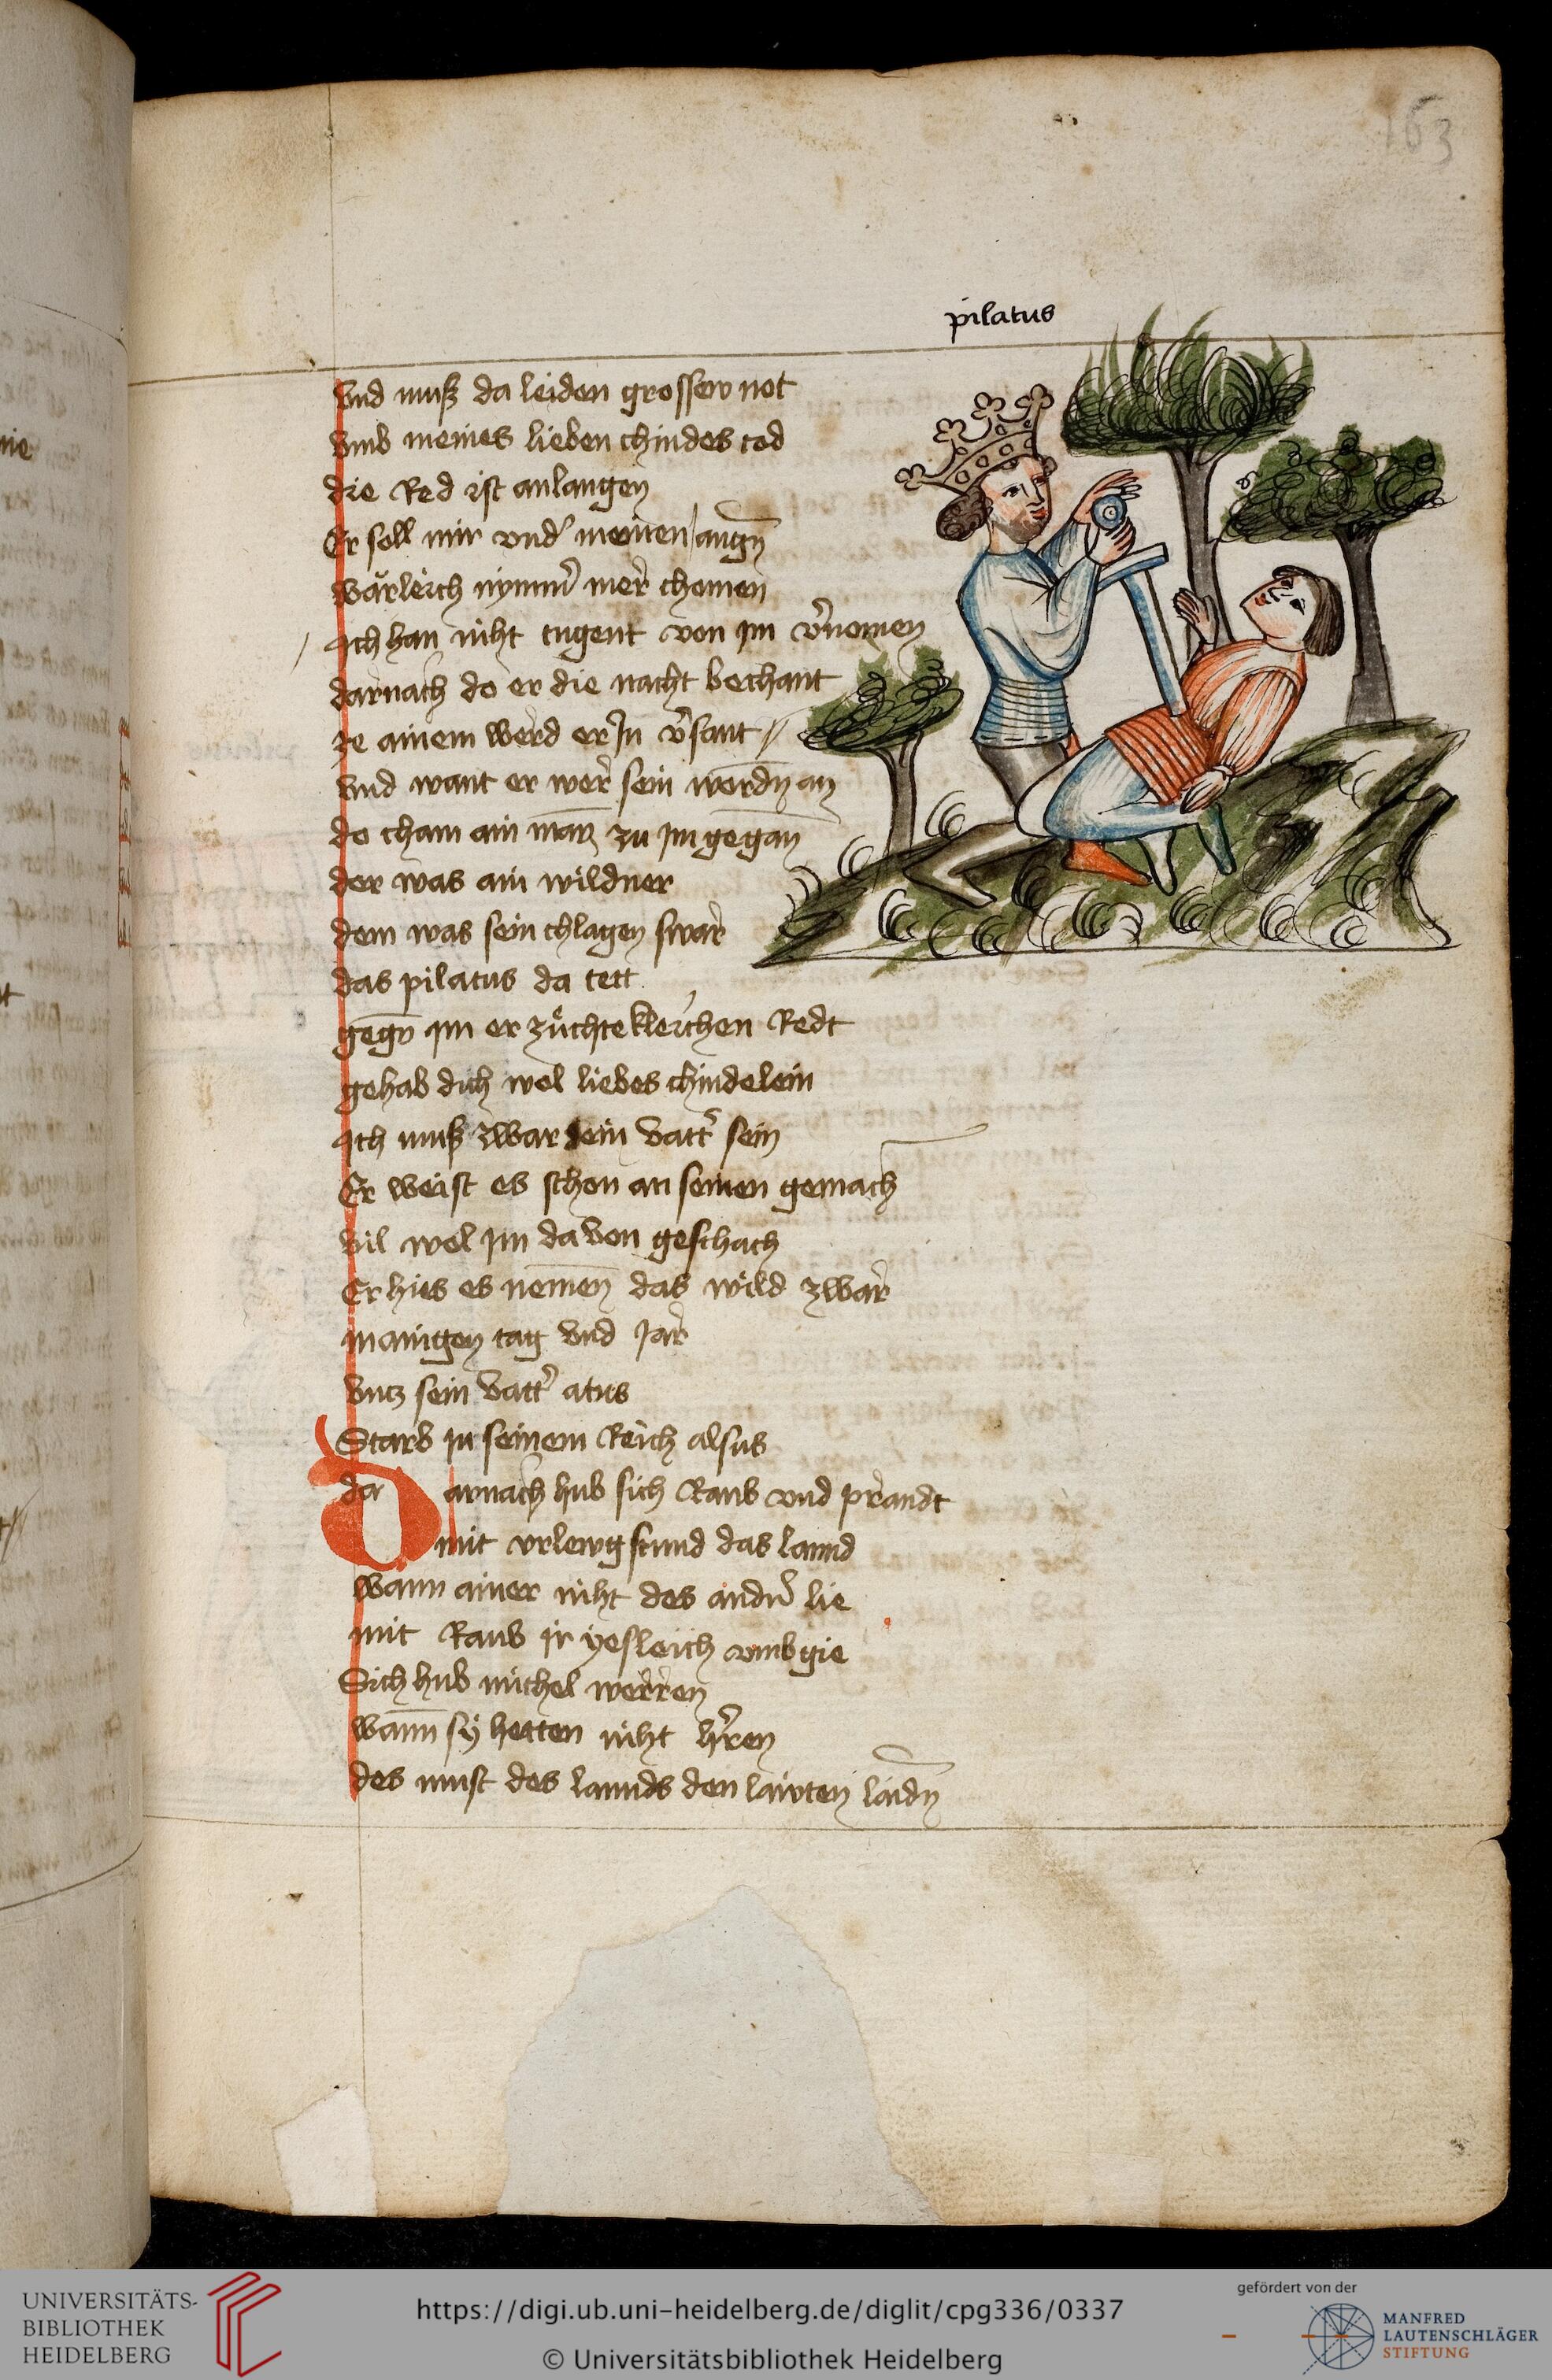 163
pilatus
vnd muß da leiden grossew not
vmb meines lieben chindes tod
die Red ist anlangen
Er soll mir vnd' meinen augn̄
wärleich nymm' mer chomen
Ich han niht tugent von im v'nomen
darnach do er die nacht bechant
ze ainem werd er In v'sant
vnd want er wer sein wordn̄ an
do cham ain man zu im gegan̄
der was ain wildner
dem was sein chlagen swar
das pilatus da tett
gegn̄ im er züchtekleichen Redt
gehab dich wol liebes chindelein
Ich muß zwar dein vatt' sein
Er weist es schon an seinen gemach
vil wol im da von geschach
Er hies es nemen̄ das wild zwar
manigen tag vnd Jar
vncz sein vatt' atus
Starb in seinem Reich alsus
darnach hub sich Raub vnd prandt
mit vrlewg stund das lannd
wann ainer niht des andn' lie
mit Raub ir yesleich vmb gie
Sich hub michel werren
wann̄ sÿ hetten niht h'ren
des must des lannds den läwten laidn̄
UNIVERSITÄTS-
BIBLIOTHEK
HEIDELBERG
https://digi.ub.uni-heidelberg.de/diglit/cpg336/0337
© Universitätsbibliothek Heidelberg
gefördert von der
MANFRED
LAUTENSCHLÄGER
STIFTUNG